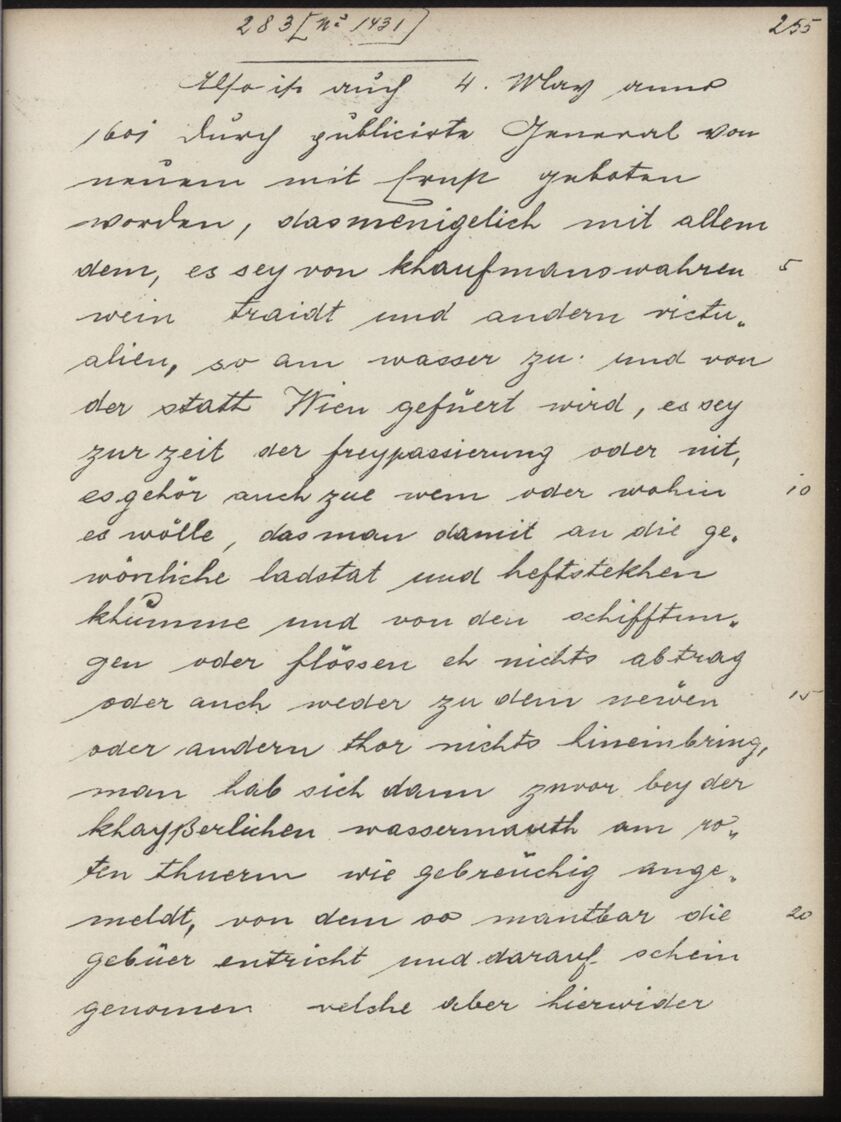 283 [No 1431] 255
Also ist auch 4. May anno
1601 durch publicirte General von
neuem mit Ernst geboten
worden, das menigelich mit allem
dem, es sey von khaufmanswahren 5
wein traidt und andern victu„
alien, so am wasser zu- und von
der statt Wien gefüert wird, es sey
zur zeit der freypassierung oder nit,
es gehör auch zue wem oder wohin 10
es wölle, das man damit an die ge„
wönliche ladstat und heftstekhen
khumme und von den schifftun„
gen oder flössen eh nichts abtrag
oder auch weder zu dem neuen 15
oder andern thor nichts hineinbring,
man hab sich dann zuvor bey der
khayßerlichen wassermauth am ro„
ten thuerm wie gebreüchig ange„
meldt, von dem so mautbar die 20
gebüer entricht und darauf schein
genomen welche aber hierwider